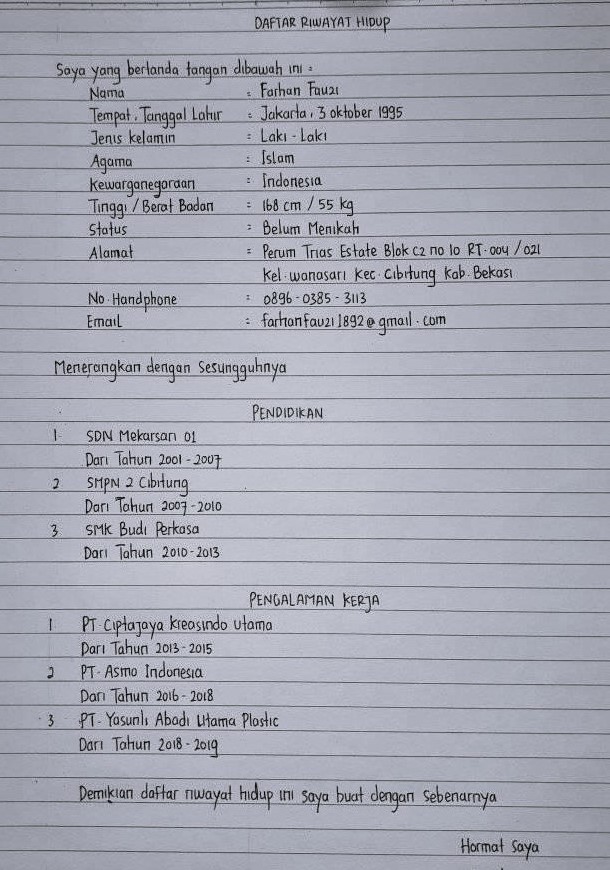 DAFTAR RIWAYAT HIDUP
Saya yang bertanda tangan dibawah ini :
Nama : Farhan Fauzi
Tempat, Tanggal Lahir : Jakarta, 3 oktober 1995
Jenis kelamin : Laki - Laki
Agama : Islam
Kewarganegaraan : Indonesia
Tinggi / Berat Badan : 168 cm / 55 kg
Status : Belum Menikah
Alamat : Perum Trias Estate Blok C2 no 10 RT. 004 / 021
Kel. wanasari Kec. Cibitung Kab. Bekasi
No. Handphone : 0896 - 0385 - 3113
Email : farhanfauzi1892@gmail.com
Menerangkan dengan Sesungguhnya
PENDIDIKAN
1. SDN Mekarsari 01
Dari Tahun 2001 - 2007
2 SMPN 2 Cibitung
Dari Tahun 2007 - 2010
3 SMK Budi Perkasa
Dari Tahun 2010 - 2013
PENGALAMAN KERJA
1 PT. Ciptajaya Kreasindo Utama
Dari Tahun 2013 - 2015
2 PT. Asmo Indonesia
Dari Tahun 2016 - 2018
3 PT. Yasunli Abadi Utama Plastic
Dari Tahun 2018 - 2019
Demikian daftar riwayat hidup ini saya buat dengan Sebenarnya
Hormat Saya